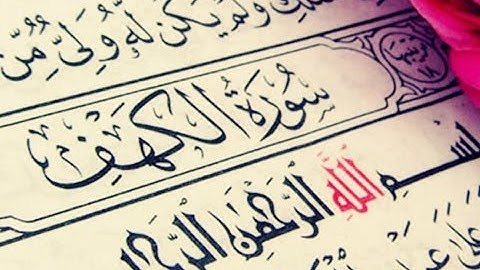 وَلَمْ يَكُن لَّهُ وَلِيٌّ مِّنَ
سُورَةُ الْكَهْفِ
١٨
بِسْمِ اللَّهِ الرَّحْمَٰنِ الرَّحِ
عَلَىٰ